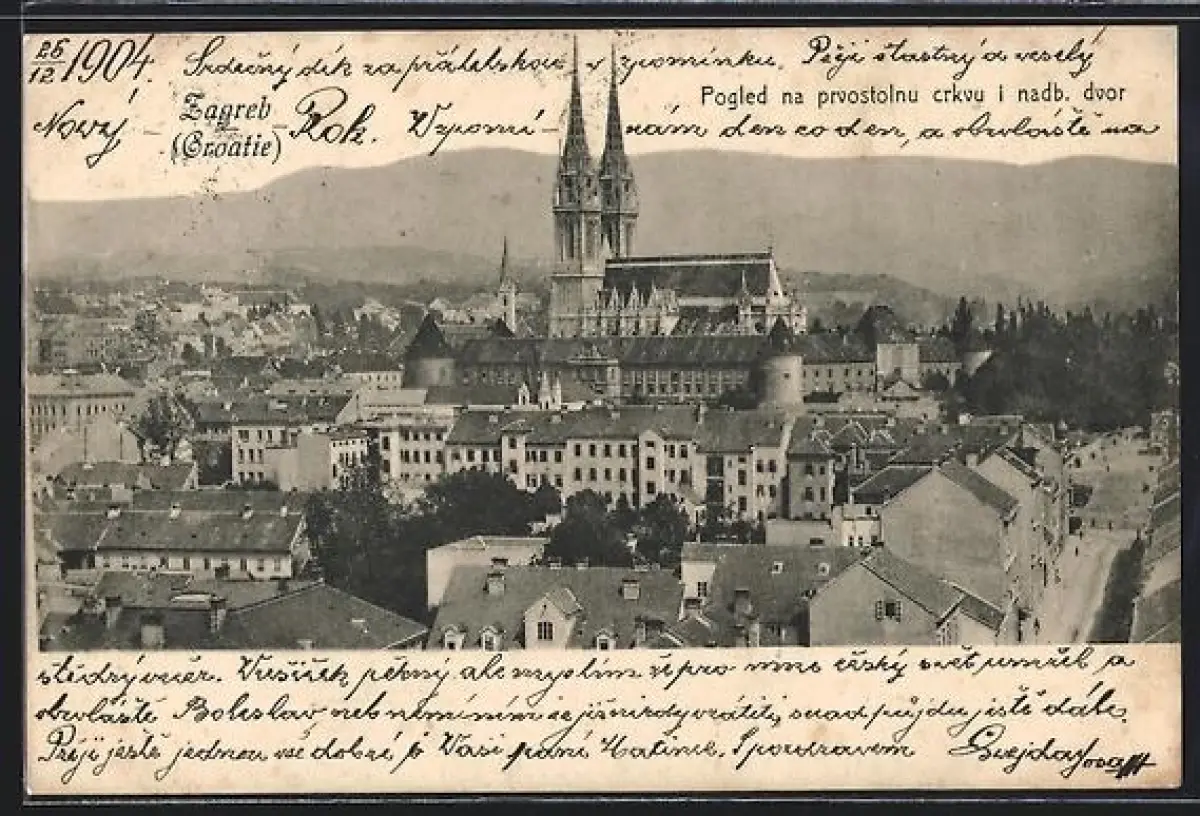 26/12 1904. Srdečný dík za přátelskou vzpomínku. Přeji šťastný a veselý
Pogled na prvostolnu crkvu i nadb. dvor
Zagreb
(Croatie)
Nový Rok. Vzpomínám den co den, a obzvláště na
štědrý večer. Vršíček pěkný ale myslím že pro mne český svět umřel a
obzvláště Boleslav neb nemíním se již nikdy vrátit, snad půjdu ještě dále.
Přeji ještě jednou vše dobré i Vaší paní Matince. S pozdravem